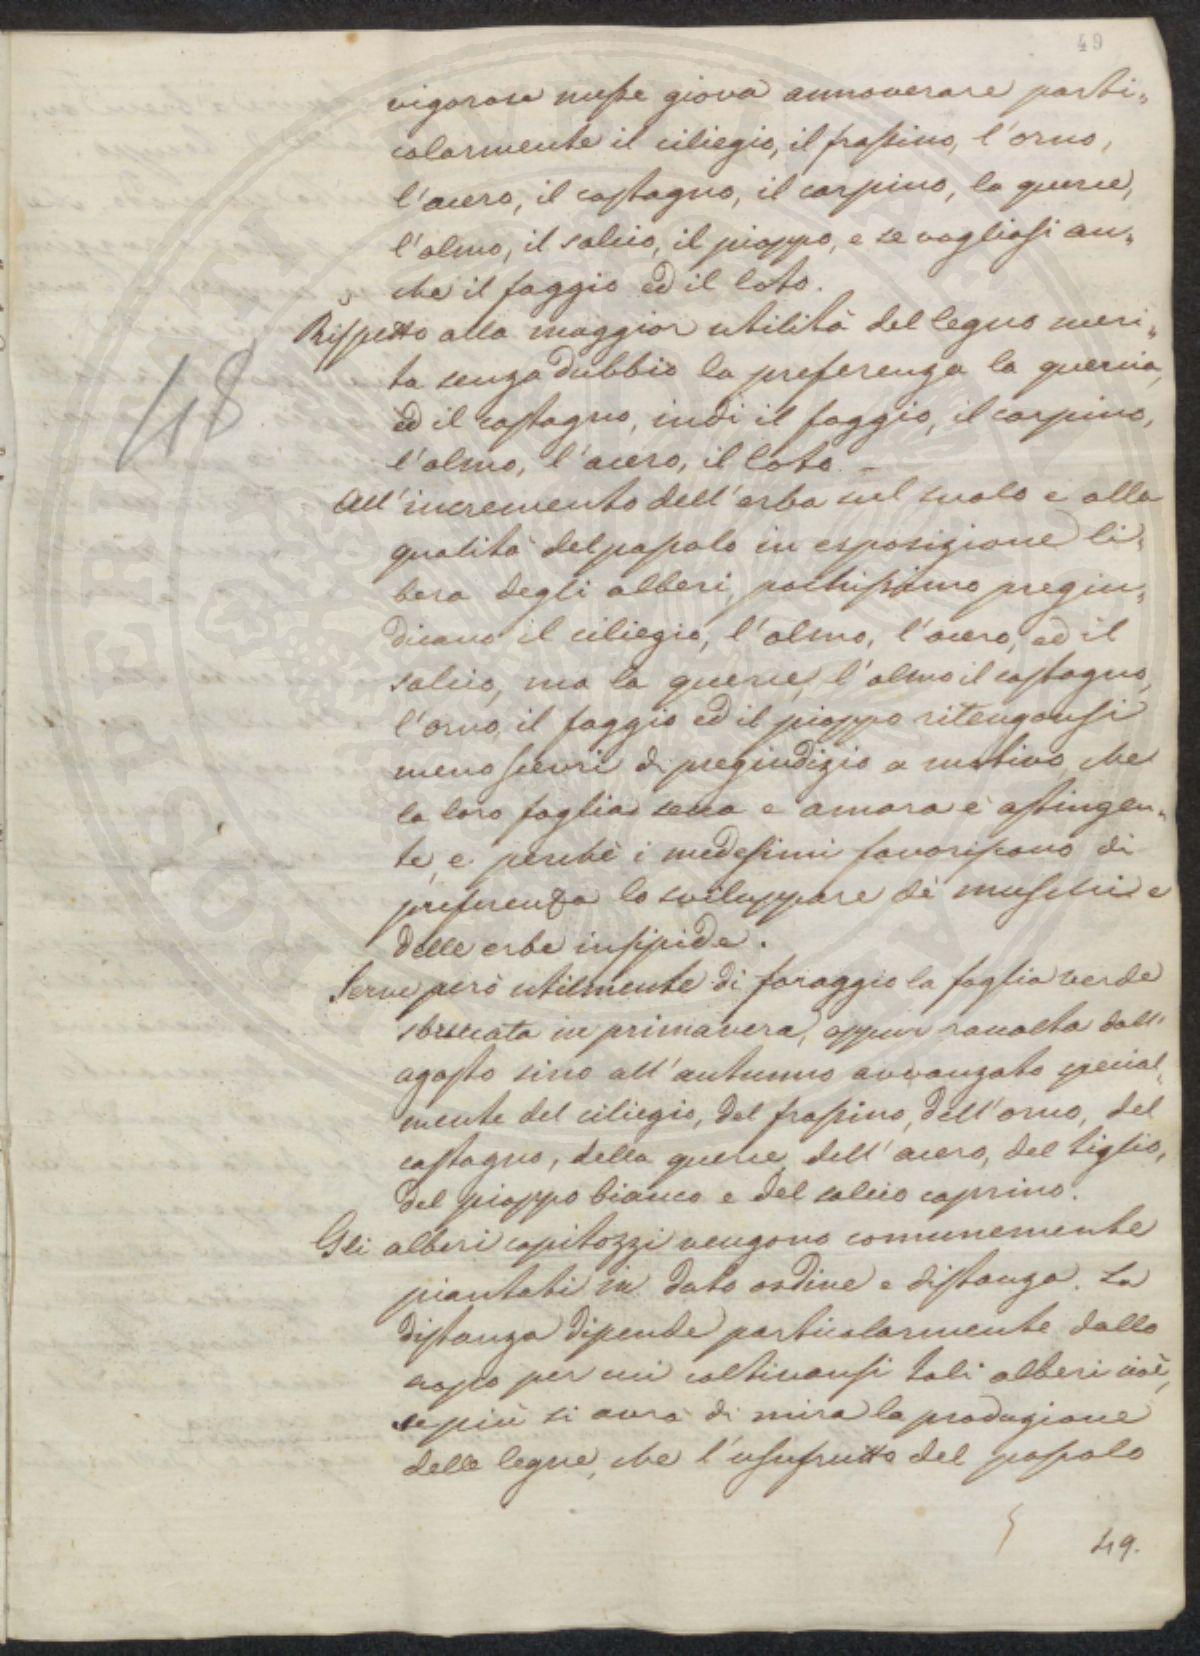 49
vigorosa messe giova annoverare parti„
colarmente il ciliegio, il frassino, l'orno,
l'acero, il castagno, il carpino, la querce,
l'olmo, il salcio, il pioppo, e se vogliasi an„
che il faggio ed il loto.
Rispetto alla maggior utilità del legno meri„
ta senza dubbio la preferenza la quercia,
ed il castagno, indi il faggio, il carpino,
l'olmo, l'acero, il loto. –
48
All'incremento dell'erba sul suolo e alla
qualità del pascolo in esposizione li„
bera degli alberi, pochissimo pregiu„
dicano il ciliegio, l'olmo, l'acero, ed il
salcio, ma la querce, l'olmo il castagno,
l'orno, il faggio ed il pioppo ritengonsi
meno scevri di pregiudizio a motivo, che
la loro foglia secca e amara è astingen„
te, e perchè i medesimi favoriscono di
preferenza lo sviluppare de' muschi e
delle erbe insipide.
Serve però utilmente di foraggio la foglia verde
sbruccata in primavera, oppur raccolta dall'
agosto sino all'autunno avvanzato special„
mente del ciliegio, del frassino, dell'orno, del
castagno, della querce, dell'acero, del tiglio,
del pioppo bianco e del salcio caprino.
Gli alberi capitozzi vengono comunemente
piantati in dato ordine e distanza. La
distanza dipende particolarmente dallo
scopo per cui coltivansi tali alberi cioè,
se più si avrà di mira la produzione
delle legne, che l'usufrutto del pascolo
49.
PROSPERITATI